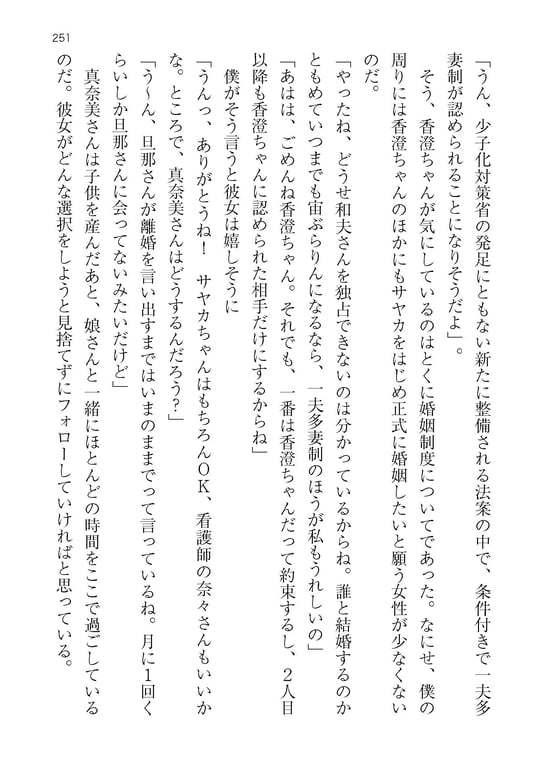 251
「うん、少子化対策省の発足にともない新たに整備される法案の中で、条件付きで一夫多
妻制が認められることになりそうだよ」。
そう、香澄ちゃんが気にしているのはとくに婚姻制度についてであった。なにせ、僕の
周りには香澄ちゃんのほかにもサヤカをはじめ正式に婚姻したいと願う女性が少なくない
のだ。
「やったね、どうせ和夫さんを独占できないのは分かっているからね。誰と結婚するのか
ともめていつまでも宙ぶらりんになるなら、一夫多妻制のほうが私もうれしいの」
「あはは、ごめんね香澄ちゃん。それでも、一番は香澄ちゃんだって約束するし、２人目
以降も香澄ちゃんに認められた相手だけにするからね」
僕がそう言うと彼女は嬉しそうに
「うんっ、ありがとうね！　サヤカちゃんはもちろんＯＫ、看護師の奈々さんもいいか
な。ところで、真奈美さんはどうするんだろう？」
「う～ん、旦那さんが離婚を言い出すまではいまのままでって言っているね。月に１回く
らいしか旦那さんに会ってないみたいだけど」
真奈美さんは子供を産んだあと、娘さんと一緒にほとんどの時間をここで過ごしている
のだ。彼女がどんな選択をしようと見捨てずにフォローしていければと思っている。